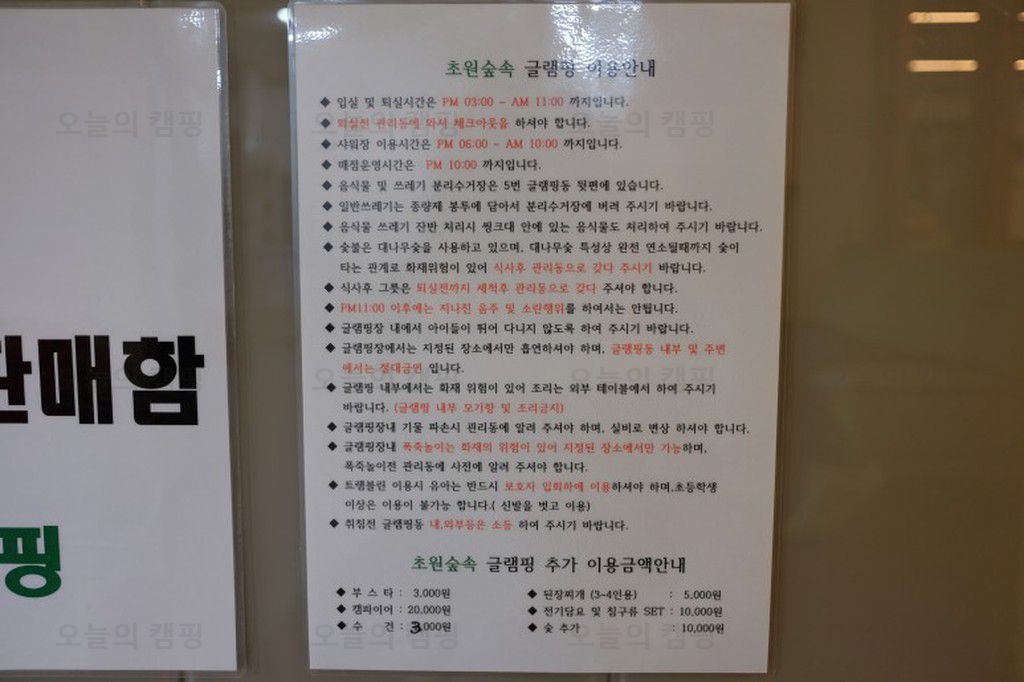 초원숲속 글램핑 이용안내
◆ 입실 및 퇴실시간은 PM 03:00 ~ AM 11:00 까지입니다.
◆ 퇴실전 관리동에 와서 체크아웃을 하셔야 합니다.
◆ 샤워장 이용시간은 PM 06:00 ~ AM 10:00 까지입니다.
◆ 매점운영시간은 PM 10:00 까지입니다.
◆ 음식물 및 쓰레기 분리수거장은 5번 글램핑동 뒷편에 있습니다.
◆ 일반쓰레기는 종량제 봉투에 담아서 분리수거장에 버려 주시기 바랍니다.
◆ 음식물 쓰레기 잔반 처리시 씽크대 안에 있는 음식물도 처리하여 주시기 바랍니다.
◆ 숯불은 대나무숯을 사용하고 있으며, 대나무숯 특성상 완전 연소될때까지 숯이
타는 관계로 화재위험이 있어 식사후 관리동으로 갖다 주시기 바랍니다.
◆ 식사후 그릇은 퇴실전까지 세척후 관리동으로 갖다 주셔야 합니다.
◆ PM11:00 이후에는 지나친 음주 및 소란행위를 하여서는 안됩니다.
◆ 글램핑장 내에서 아이들이 뛰어 다니지 않도록 하여 주시기 바랍니다.
◆ 글램핑장에서는 지정된 장소에서만 흡연하셔야 하며, 글램핑동 내부 및 주변
에서는 절대금연 입니다.
◆ 글램핑 내부에서는 화재 위험이 있어 조리는 외부 테이블에서 하여 주시기
바랍니다. (글램핑 내부 모기향 및 조리금지)
◆ 글램핑장내 기물 파손시 관리동에 알려 주셔야 하며, 실비로 변상 하셔야 합니다.
◆ 글램핑장내 폭죽놀이는 화재의 위험이 있어 지정된 장소에서만 가능하며,
폭죽놀이전 관리동에 사전에 알려 주셔야 합니다.
◆ 트램블린 이용시 유아는 반드시 보호자 입회하에 이용하셔야 하며,초등학생
이상은 이용이 불가능 합니다.( 신발을 벗고 이용)
◆ 취침전 글램핑동 내,외부등은 소등 하여 주시기 바랍니다.
초원숲속 글램핑 추가 이용금액안내
◆ 부 스 타 : 3,000원 ◆ 된장찌개 (3~4인용) : 5,000원
◆ 캠파이어 : 20,000원 ◆ 전기담요 및 침구류 SET : 10,000원
◆ 수 건 : 3,000원 ◆ 숯 추가 : 10,000원
판매함
핑
오늘의 캠핑
오늘의 캠핑
오늘의 캠핑
오늘의 캠핑
오늘의 캠핑
오늘의 캠핑
오늘의 캠핑
오늘의 캠핑
오늘의 캠핑